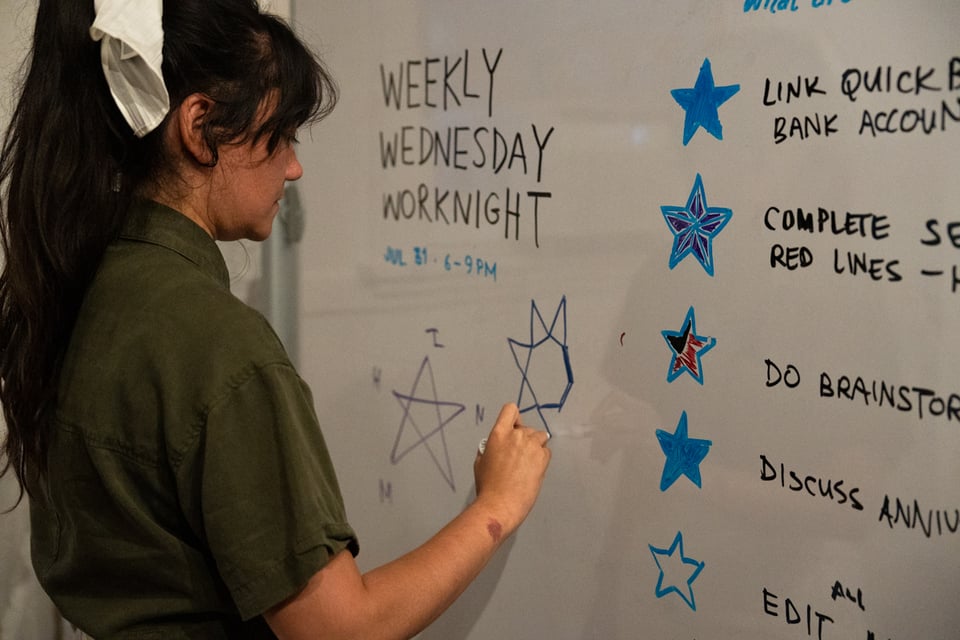 WEEKLY
WEDNESDAY
WORKNIGHT
JUL 31 · 6-9PM
I
H
N
M
What are
LINK QUICKB
BANK ACCOUN
COMPLETE SE
RED LINES – H
DO BRAINSTOR
DISCUSS ANNIV
ALL
EDIT